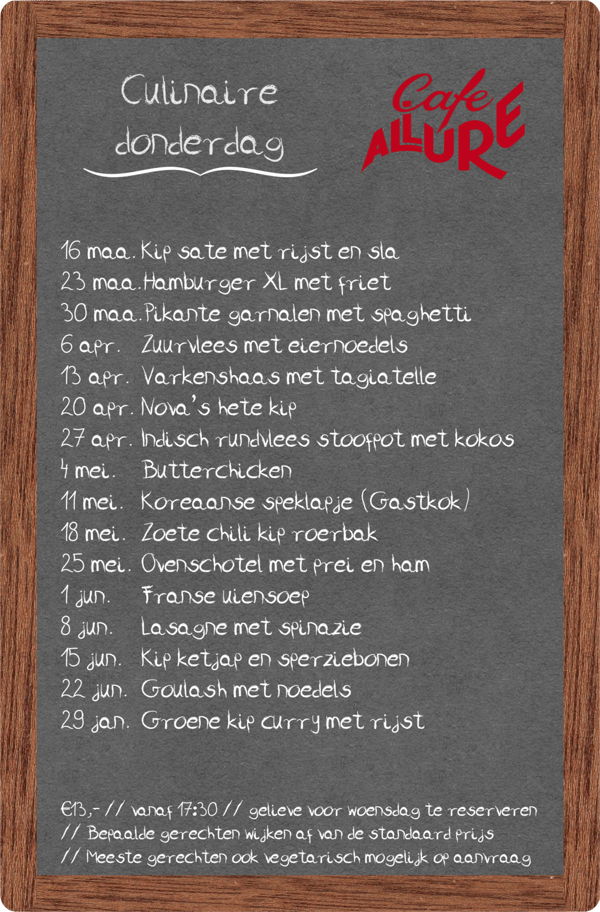 Culinaire
donderdag
Cafe
ALLURE
16 maa. Kip sate met rijst en sla
23 maa. Hamburger XL met friet
30 maa. Pikante garnalen met spaghetti
6 apr. Zuurvlees met eiernoedels
13 apr. Varkenshaas met tagiatelle
20 apr. Nova's hete kip
27 apr. Indisch rundvlees stoofpot met kokos
4 mei. Butterchicken
11 mei. Koreaanse speklapje (Gastkok)
18 mei. Zoete chili kip roerbak
25 mei. Ovenschotel met prei en ham
1 jun. Franse uiensoep
8 jun. Lasagne met spinazie
15 jun. Kip ketjap en sperziebonen
22 jun. Goulash met noedels
29 jan. Groene kip curry met rijst
€13,- // vanaf 17:30 // gelieve voor woensdag te reserveren
// Bepaalde gerechten wijken af van de standaard prijs
// Meeste gerechten ook vegetarisch mogelijk op aanvraag